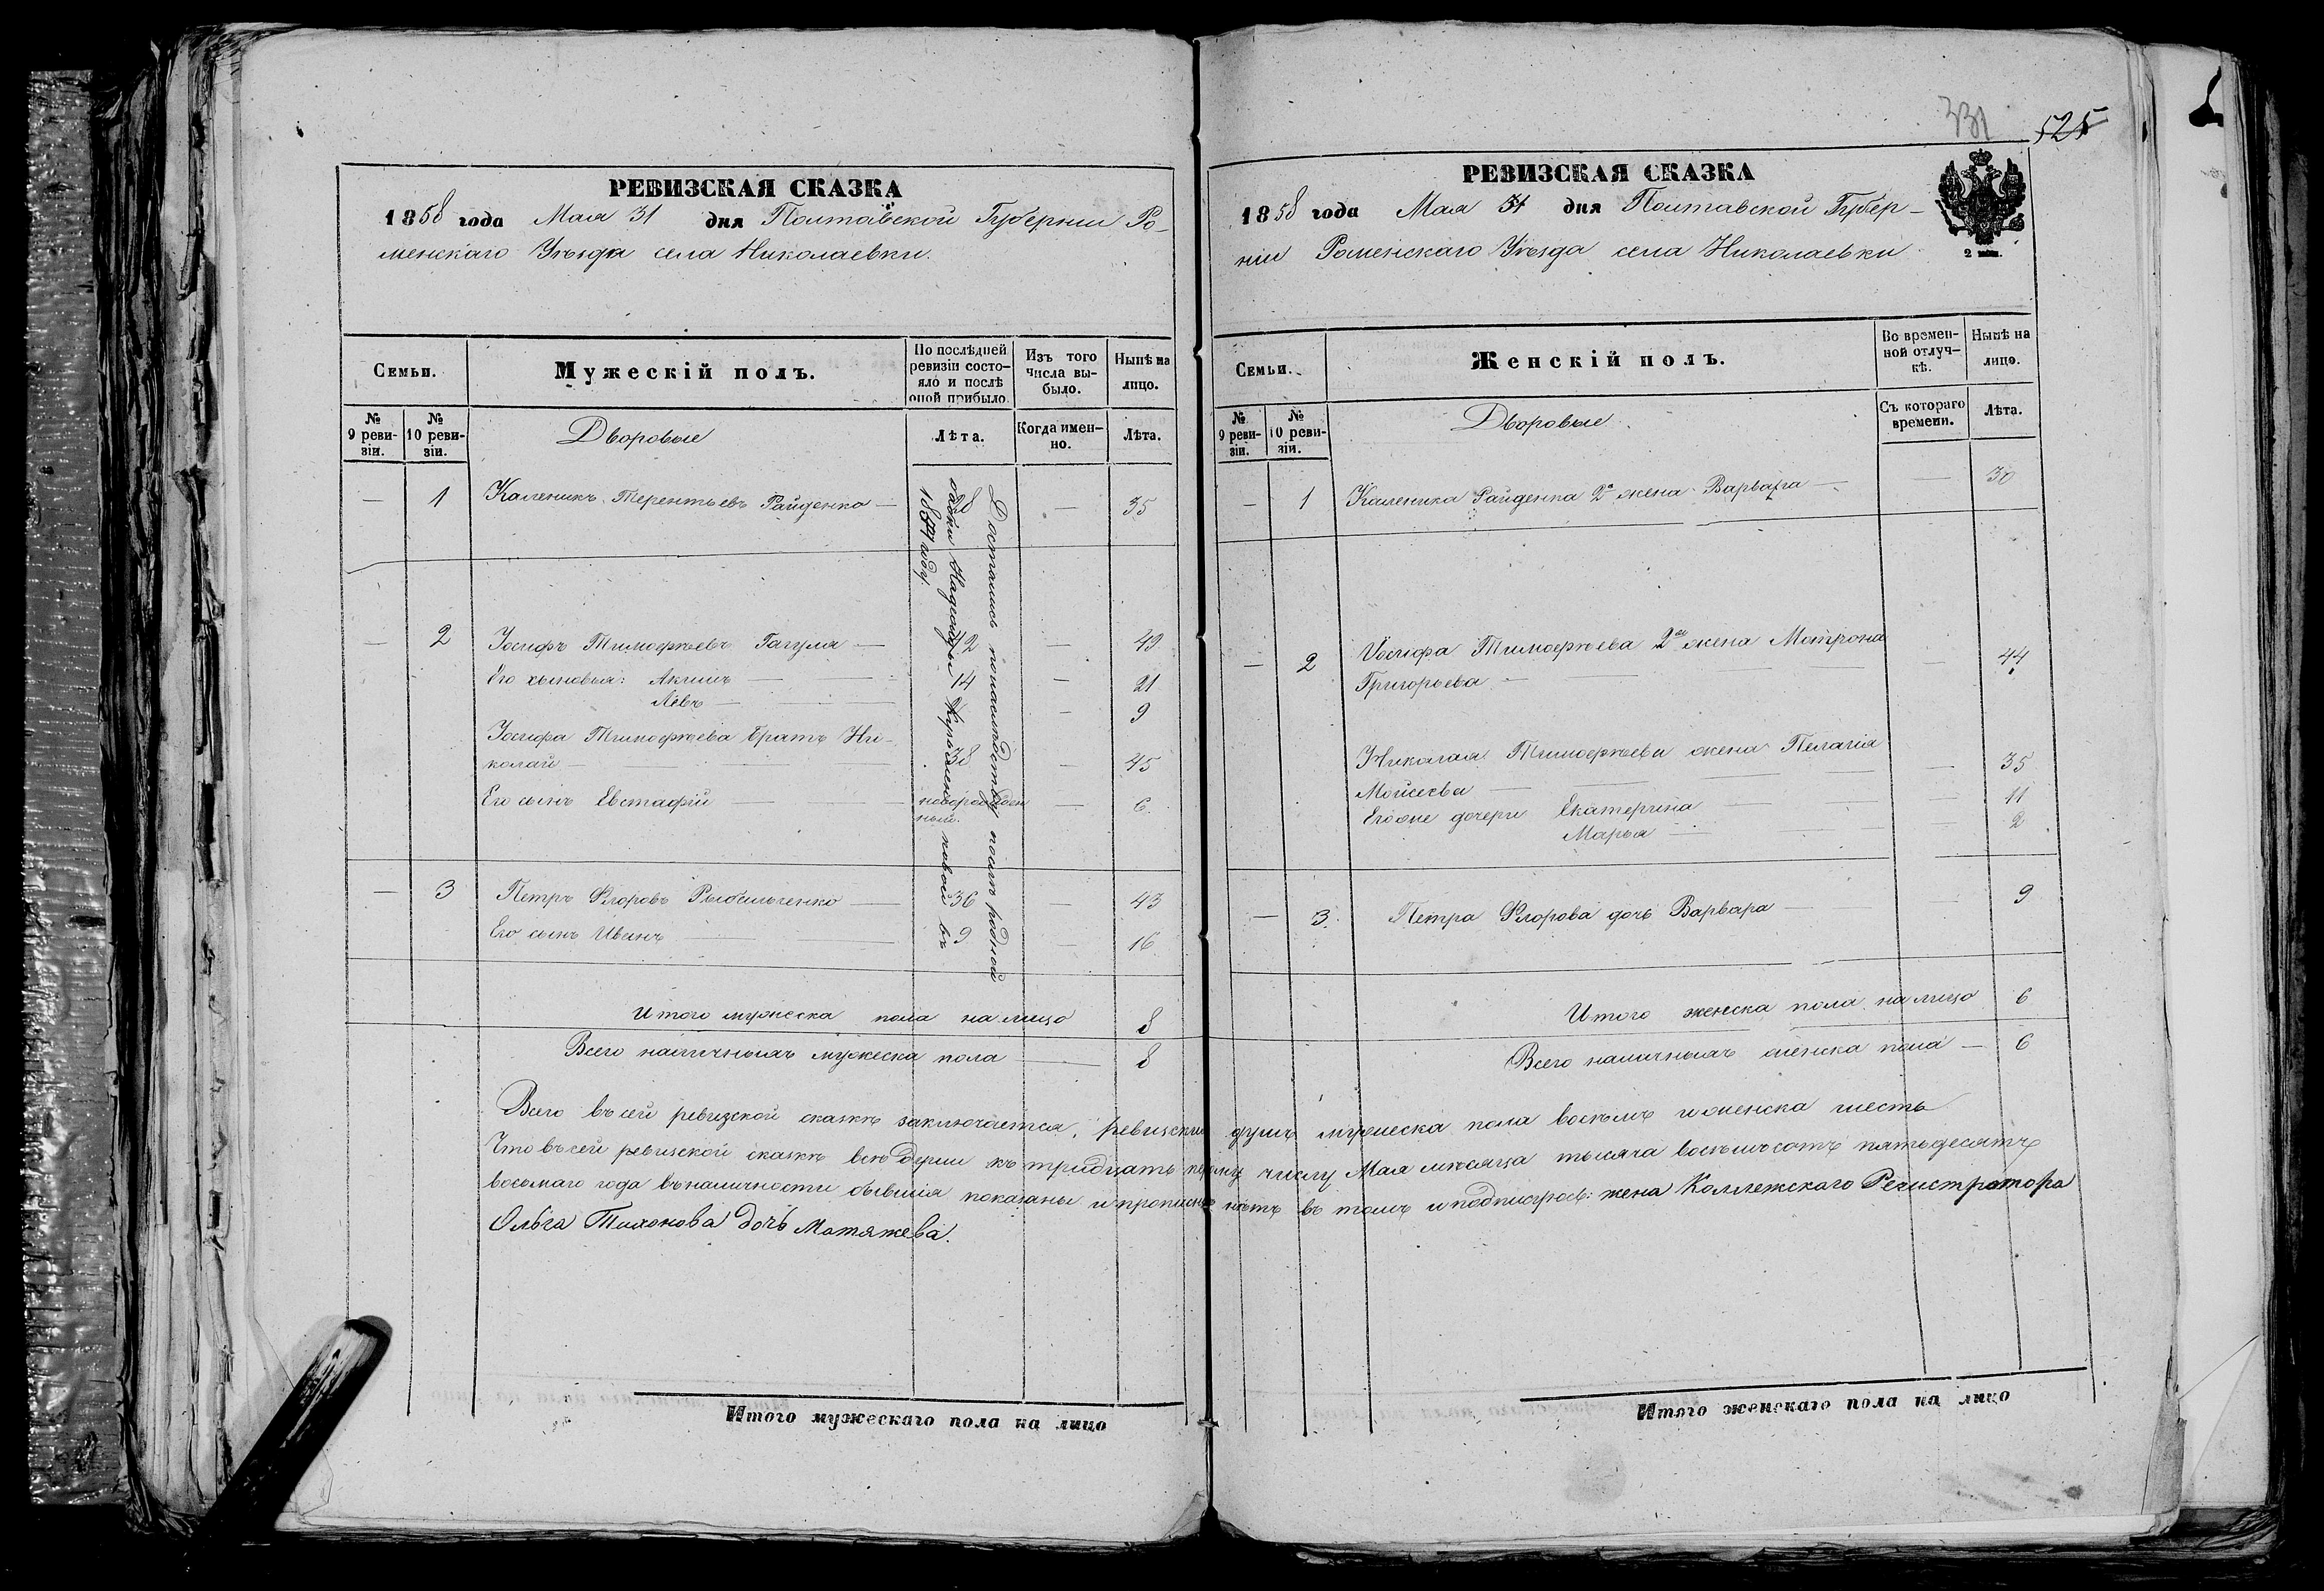 331
525
РЕВИЗСКАЯ СКАЗКА
1858 года Мая 31 дня Полтавской Губернии Ро-
менскаго Уѣзда села Николаевки.
Семьи.
Мужескій полъ.
По послѣдней ревизіи состояло и послѣ оной прибыло.
Изъ того числа выбыло.
Нынѣ на лицо.
№ 9 ревизіи.
№ 10 ревизіи.
Дворовые
Лѣта.
Когда именно.
Лѣта.
— 1 Каленикъ Терентьевъ Райденко — 28 — 35
— 2 Іосифъ Тимофѣевъ Гагуля — 42 — 49
Его сыновья: Акимъ — 14 — 21
Левъ — — 9
Іосифа Тимофѣева братъ Ни-
колай — 38 — 45
Его сынъ Евстафій — новорожден
ный. — 6
— 3 Петръ Флоровъ — 36 — 43
Его сынъ Иванъ — 9 — 16
Достались по наслѣдству послѣ родной
бабки Надежды въ
году
Итого мужеска пола на лицо 8
Всего наличныхъ мужеска пола — 8
РЕВИЗСКАЯ СКАЗКА
1858 года Мая 31 дня Полтавской Губер-
ніи Роменскаго Уѣзда села Николаевки
Семьи.
Женскій полъ.
Во временной отлучкѣ.
Нынѣ на лицо.
№ 9 ревизіи.
№ 10 ревизіи.
Дворовые
Съ котораго времени.
Лѣта.
— 1 Каленика Райденка 2я жена Варвара — — 30
— 2 Іосифа Тимофѣева 2я жена Матрона
Григорьева — — 44
Николая Тимофѣева жена Пелагія
Мойсеева — — 35
Его же дочери Екатерина — — 11
Марья — — 2
— 3. Петра Флорова дочь Варвара — 9
Итого женска пола на лицо 6
Всего наличныхъ женска пола — 6
Всего въ сей ревизской сказкѣ заключается, ревизскихъ душъ мужеска пола восемь и женска шесть
Что въ сей ревизской сказкѣ всѣ души къ тридцать первому числу Мая мѣсяца тысяча восемьсотъ пятьдесятъ
восьмаго года въ наличности бывшія показаны и прописныхъ нѣтъ въ томъ и подписуюсь: жена Коллежскаго Регистратора
Ольга Тихонова дочь Матяжева.
Итого мужескаго пола на лицо
Итого женскаго пола на лицо